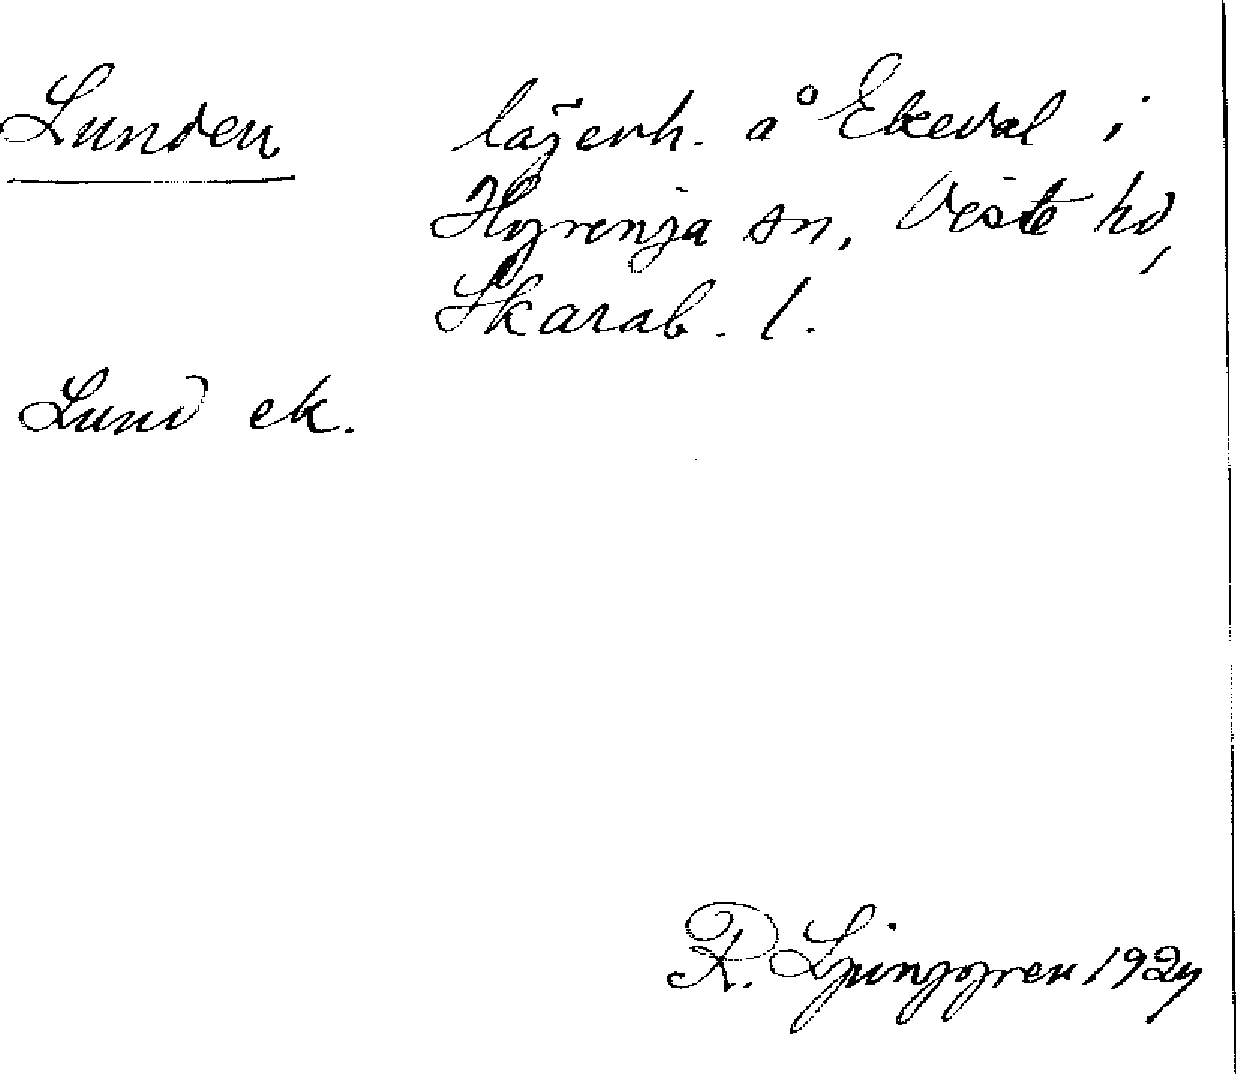 Lunden lägenh. å Ekeval i
Hyrenja sn, Viste hd,
Skarab. l.
Lund ek.
R. Ljunggren 1927